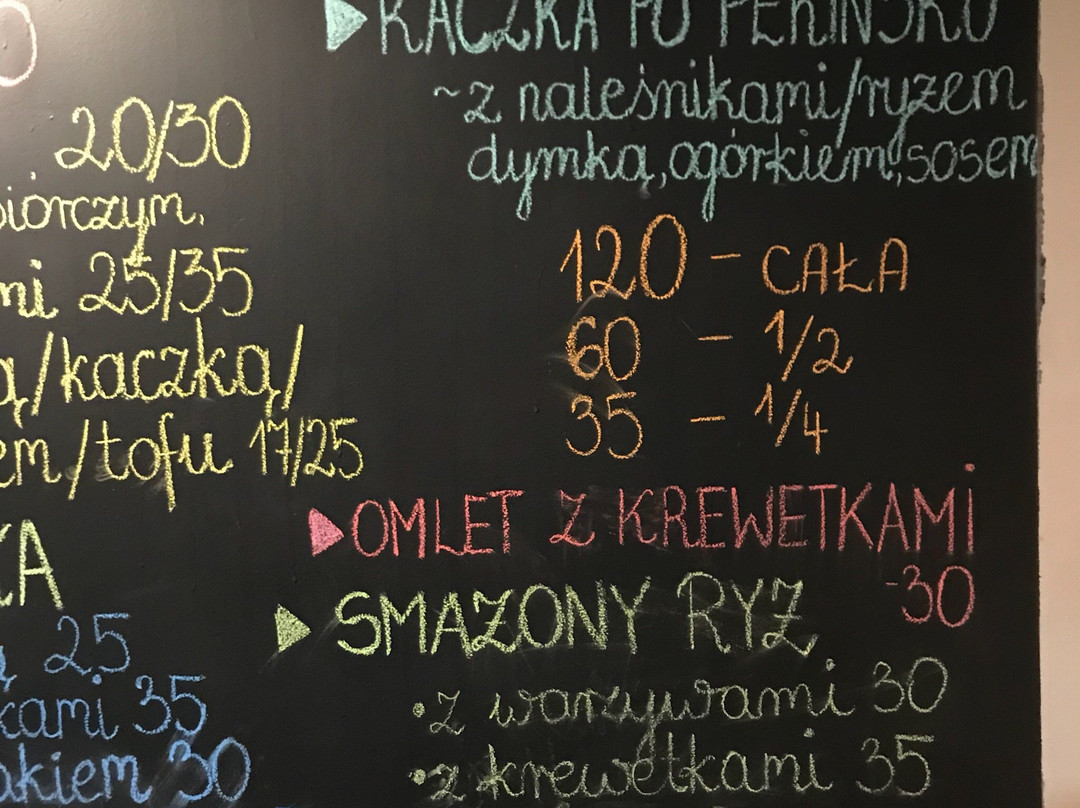 20/30
mi 25/35
/kaczką/
/tofu 17/25
KA
25
kami 35
akiem 30
KACZKA PO PEKIŃSKU
~z naleśnikami/ryżem
dymką, ogórkiem, sosem
120 - CAŁA
60 - 1/2
35 - 1/4
OMLET Z KREWETKAMI
-30
SMAŻONY RYŻ
•z warzywami 30
•z krewetkami 35